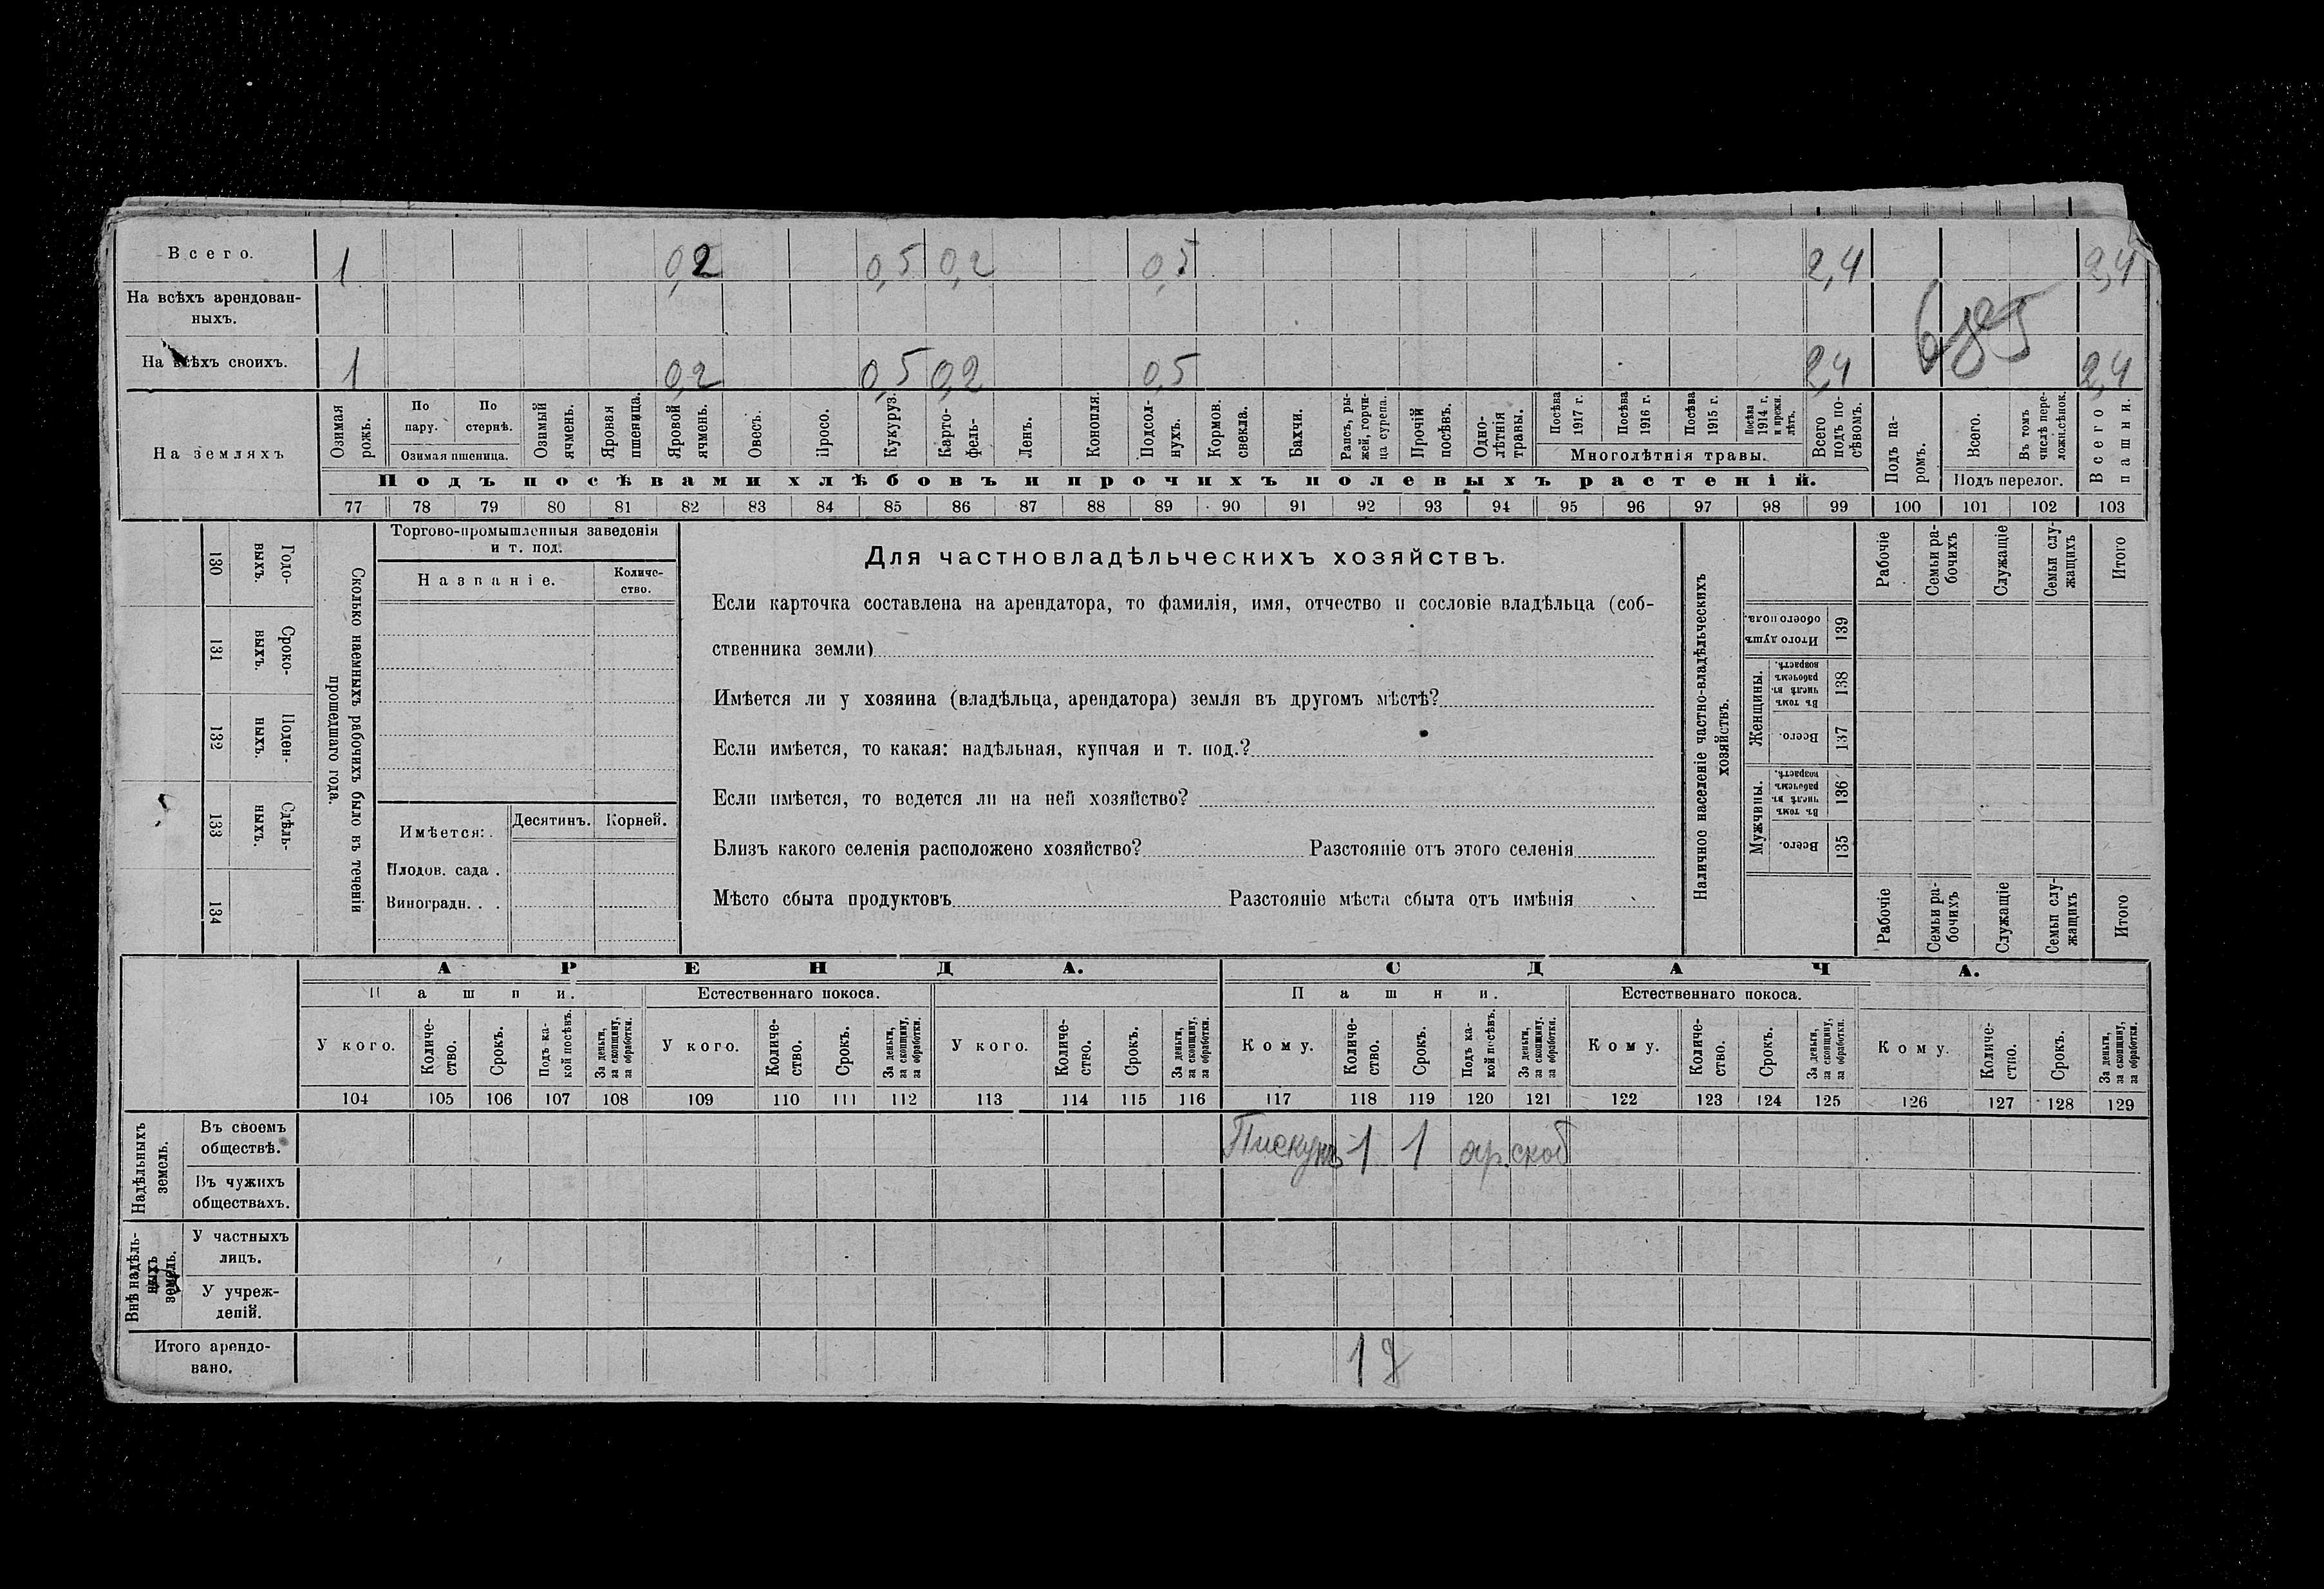 Всего. 1 0,2 0,5 0,2 0,5 2,4 2,4
На всѣхъ арендован-
ныхъ.
На всѣхъ своихъ. 1 0,2 0,5 0,2 0,5 2,4 2,4
На земляхъ
Озимая рожь.
По пару.
По стернѣ.
Озимая пшеница.
Озимый ячмень.
Яровая пшеница.
Яровой ячмень.
Овесъ.
Просо.
Кукуруз.
Карто-
фель-
Ленъ.
Конопля.
Подсол-
нухъ.
Кормов. свекла.
Бахчи.
Рапсъ, ры-
жей, горчи-
ца сурепа.
Прочій посѣвъ.
Одно-
лѣтнія травы.
Посѣва 1917 г.
Посѣва 1916 г.
Посѣва 1915 г.
Посѣва 1914 г. и прежн. лѣтъ.
Многолѣтнія травы.
Всего подъ по-
сѣвомъ.
Подъ па-
ромъ.
Всего.
Въ томъ числѣ пере-
ложн.сѣнок.
Подъ перелог.
Всего пашни.
Подъ посѣвами хлѣбовъ и прочихъ полевыхъ растеній.
77 78 79 80 81 82 83 84 85 86 87 88 89 90 91 92 93 94 95 96 97 98 99 100 101 102 103
130 Годо-
выхъ.
131 Сроко-
выхъ.
132 Поден-
ныхъ.
133 Сдѣль-
ныхъ.
134
Сколько наемныхъ рабочихъ было въ теченіи
прошедшаго года.
Торгово-промышленныя заведенія
и т. под.
Названіе.
Количе-
ство.
Имѣется:
Десятинъ. Корней.
Плодов. сада .
Виноградн. . .
Для частновладѣльческихъ хозяйствъ.
Если карточка составлена на арендатора, то фамилія, имя, отчество и сословіе владѣльца (соб-
ственника земли)
Имѣется ли у хозяина (владѣльца, арендатора) земля въ другомъ мѣстѣ?
Если имѣется, то какая: надѣльная, купчая и т. под.?
Если имѣется, то ведется ли на ней хозяйство?
Близъ какого селенія расположено хозяйство? Разстояніе отъ этого селенія
Мѣсто сбыта продуктовъ Разстояніе мѣста сбыта отъ имѣнія
Наличное населеніе частно-владѣльческихъ
хозяйствъ.
Рабочіе
Семьи ра-
бочихъ
Служащіе
Семьи слу-
жащихъ
Итого
Итого душъ обоего пола. 139
Женщины.
Въ томъ числѣ въ рабочемъ возрастѣ. 138
Всего. 137
Мужчины.
Въ томъ числѣ въ рабочемъ возрастѣ. 136
Всего. 135
Рабочіе
Семьи ра-
бочихъ
Служащіе
Семьи слу-
жащихъ
Итого
АРЕНДА. СДАЧА.
Пашни. Естественнаго покоса. Пашни. Естественнаго покоса.
У кого.
Количе-
ство.
Срокъ.
Подъ ка-
кой посѣвъ.
За деньги, за скопщину, за обработки.
У кого.
Количе-
ство.
Срокъ.
За деньги, за скопщину, за обработки.
У кого.
Количе-
ство.
Срокъ.
За деньги, за скопщину, за обработки.
Кому.
Количе-
ство.
Срокъ.
Подъ ка-
кой посѣвъ.
За деньги, за скопщину, за обработки.
Кому.
Количе-
ство.
Срокъ.
За деньги, за скопщину, за обработки.
Кому.
Количе-
ство.
Срокъ.
За деньги, за скопщину, за обработки.
104 105 106 107 108 109 110 111 112 113 114 115 116 117 118 119 120 121 122 123 124 125 126 127 128 129
Надѣльныхъ земель.
Въ своемъ
обществѣ. 1 1
Въ чужихъ
обществахъ.
Внѣ надѣль-
ныхъ земель.
У частныхъ
лицъ.
У учреж-
деній.
Итого арендо-
вано. 1